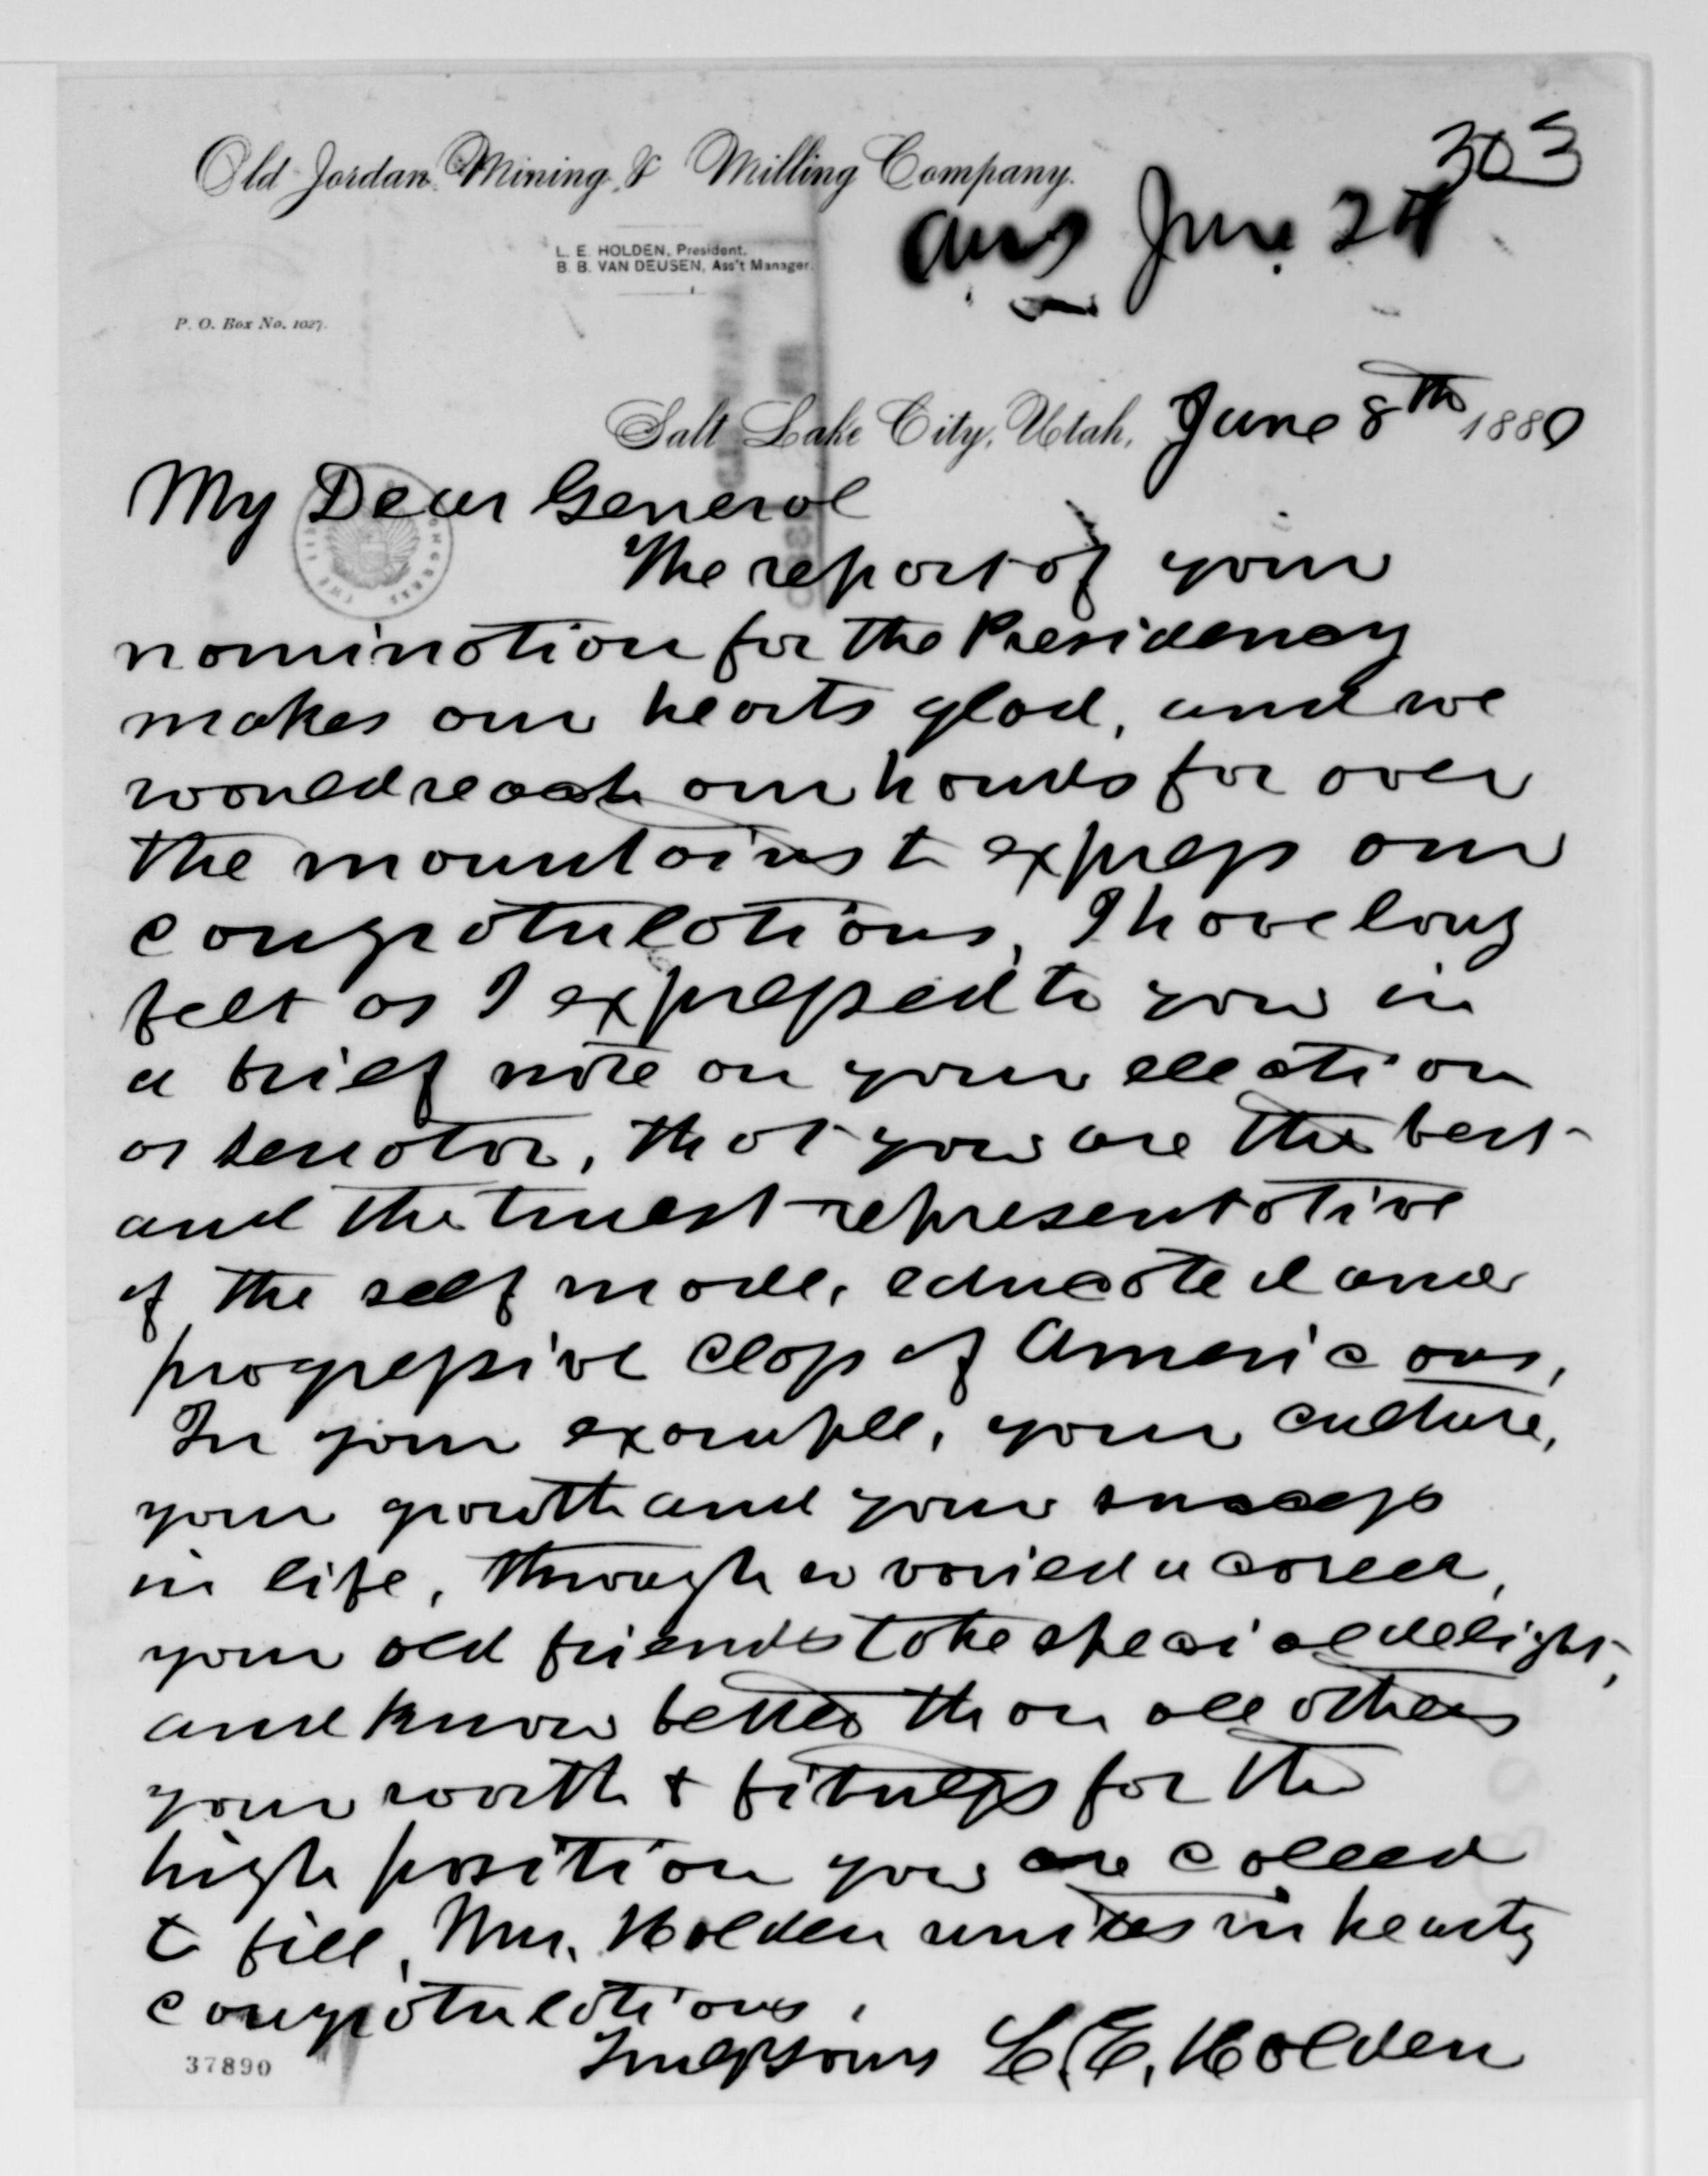 303
Old Jordan Mining & Milling Company.
Ans June 24
L. E. HOLDEN, President.
B. B. VAN DEUSEN, Ass't Manager.
P. O. Box No. 1027.
Salt Lake City, Utah, June 8th 1880
My Dear General
The report of your
nomination for the Presidency
makes our hearts glad, and we
would reach our hands far over
the mountains to express our
congratulations, I have long
felt as I expressed to you in
a brief note on your election
as senator, that you are the best
and the truest representative
of the self made, educated and
progressive class of Americans,
In your example, your culture,
your growth and your success
in life, through so varied a career,
your old friends take special delight,
and know better than all others
your worth & fitness for the
high position you are called
to fill, Mrs. Holden unites in hearty
congratulations.
Truly Yours L. E. Holden
37890